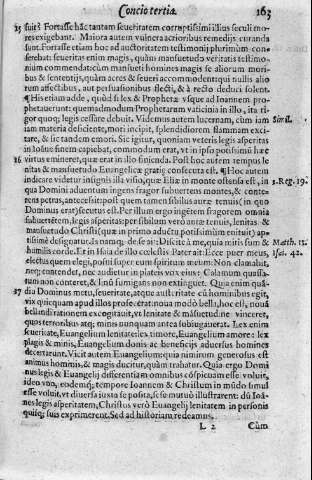 Concio tertia. 163
25 fuit? Fortasse hâc tantam seueritatem corruptissimi illius seculi mo-
res exigebant. Maiora autem vulnera acrioribus remedijs curanda
sunt. Fortasse etiam hoc ad auctoritatem testimonij plurimùm con-
ferebat: seueritas enim magis, quàm mansuetudo veritatis testimo-
nium commendat: cùm mansueti homines magis se aliorum mori-
bus & sententijs, quàm acres & seueri accommodent: qui nullis alio-
rum affectibus, aut persuasionibus flecti, & à recto deduci solent.
¶ His etiam adde, quòd si lex & Prophetæ vsque ad Ioannem pro-
phetauerunt: quemadmodum Prophetarum vaticinia in illo, ita ri-
gor quoq; legis cessare debuit. Videmus autem lucernam, cùm iam Simil.
iam materia deficiente, mori incipit, splendidiorem flammam exci-
tare, & sic tandem emori. Sic igitur, quoniam veteris legis asperitas
in Iosue finem capiebat, commodum erat, vt in ipso potissimùm hæc
26 virtus emineret, quæ erat in illo finienda. Post hoc autem tempus le-
nitas & mansuetudo Euangelicæ gratiæ consecuta est. ¶ Hoc autem
indicare videtur insignis illa visio, quæ Eliæ in monte ostensa est, in 3. Reg. 19.
qua Domini aduentum ingens fragor subuertens montes, & conte-
rens petras, antecessit: post quem tamen sibilus auræ tenuis (in quo
Dominus erat) secutus est. Per illum ergo ingētem fragorem omnia
subuertētem, legis asperitas: per sibilum verò auræ tenuis, lenitas &
mansuetudo Christi (quæ in primo aduētu potissimùm enituit) ap-
tissimè designatur. Is namq; de se ait: Discite à me, quia mitis sum & Matth. 11.
humilis corde. Et in Isaia de illo cœlestis Pater ait: Ecce puer meus, Isai. 42.
electus quem elegi, posui super eum spiritum meum. Non clamabit,
neq; contendet, nec audiet in plateis vox eius: Calamum quassa-
tum non conteret, & linū fumigans non extinguet. Quia enim quâ-
27 dia Dominus metu, seueritate, atque austeritate cū hominibus egit,
vix quicquam apud illos profecerat: noua modò bella, hoc est, nouā
bellandi rationem excogitauit, vt lenitate & māsuetudine vinceret,
quos terroribus atq; minis nunquam antea subiugauerat. Lex enim
seueritate, Euangelium lenitate: lex timore, Euangelium amore: lex
plagis & minis, Euangelium donis ac beneficijs aduersus homines
decertarunt. Vicit autem Euangelium: quia nimirum generosus est
animus hominis, & magis ducitur, quàm trahatur. Quia ergo Domi-
nus legis & Euangelij differentiam omnibus cōspicuam esse voluit,
ideo vno, eodemq; tempore Ioannem & Christum in mūdo simul
esse voluit, vt diuersa iuxta se posita, se se mutuò illustrarent: dū Ioā-
nes legis asperitatem, Christus verò Euangelij lenitatem in personis
quisq; suis exprimerent. Sed ad historiam redeamus.
L 2 Cùm